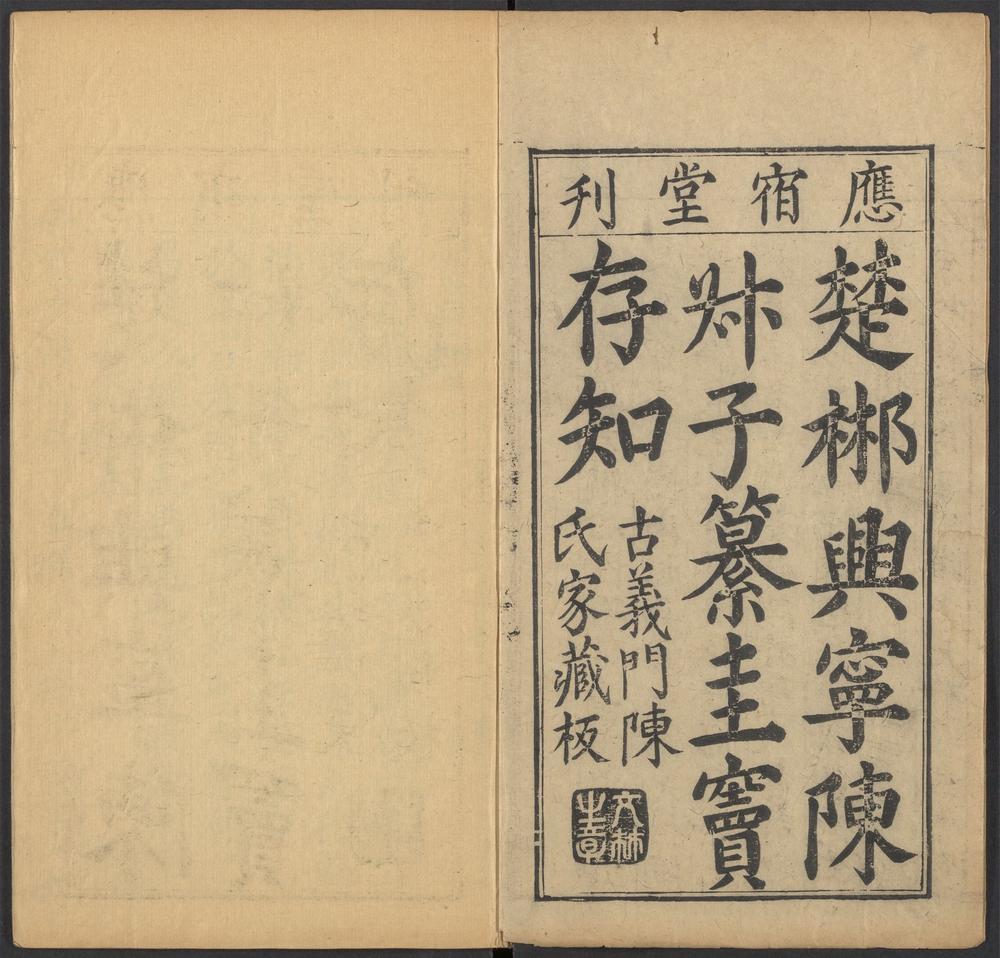 應宿堂刊
楚郴興寧陳
子纂圭竇
存知
古義門陳
氏家藏板
文林
之章